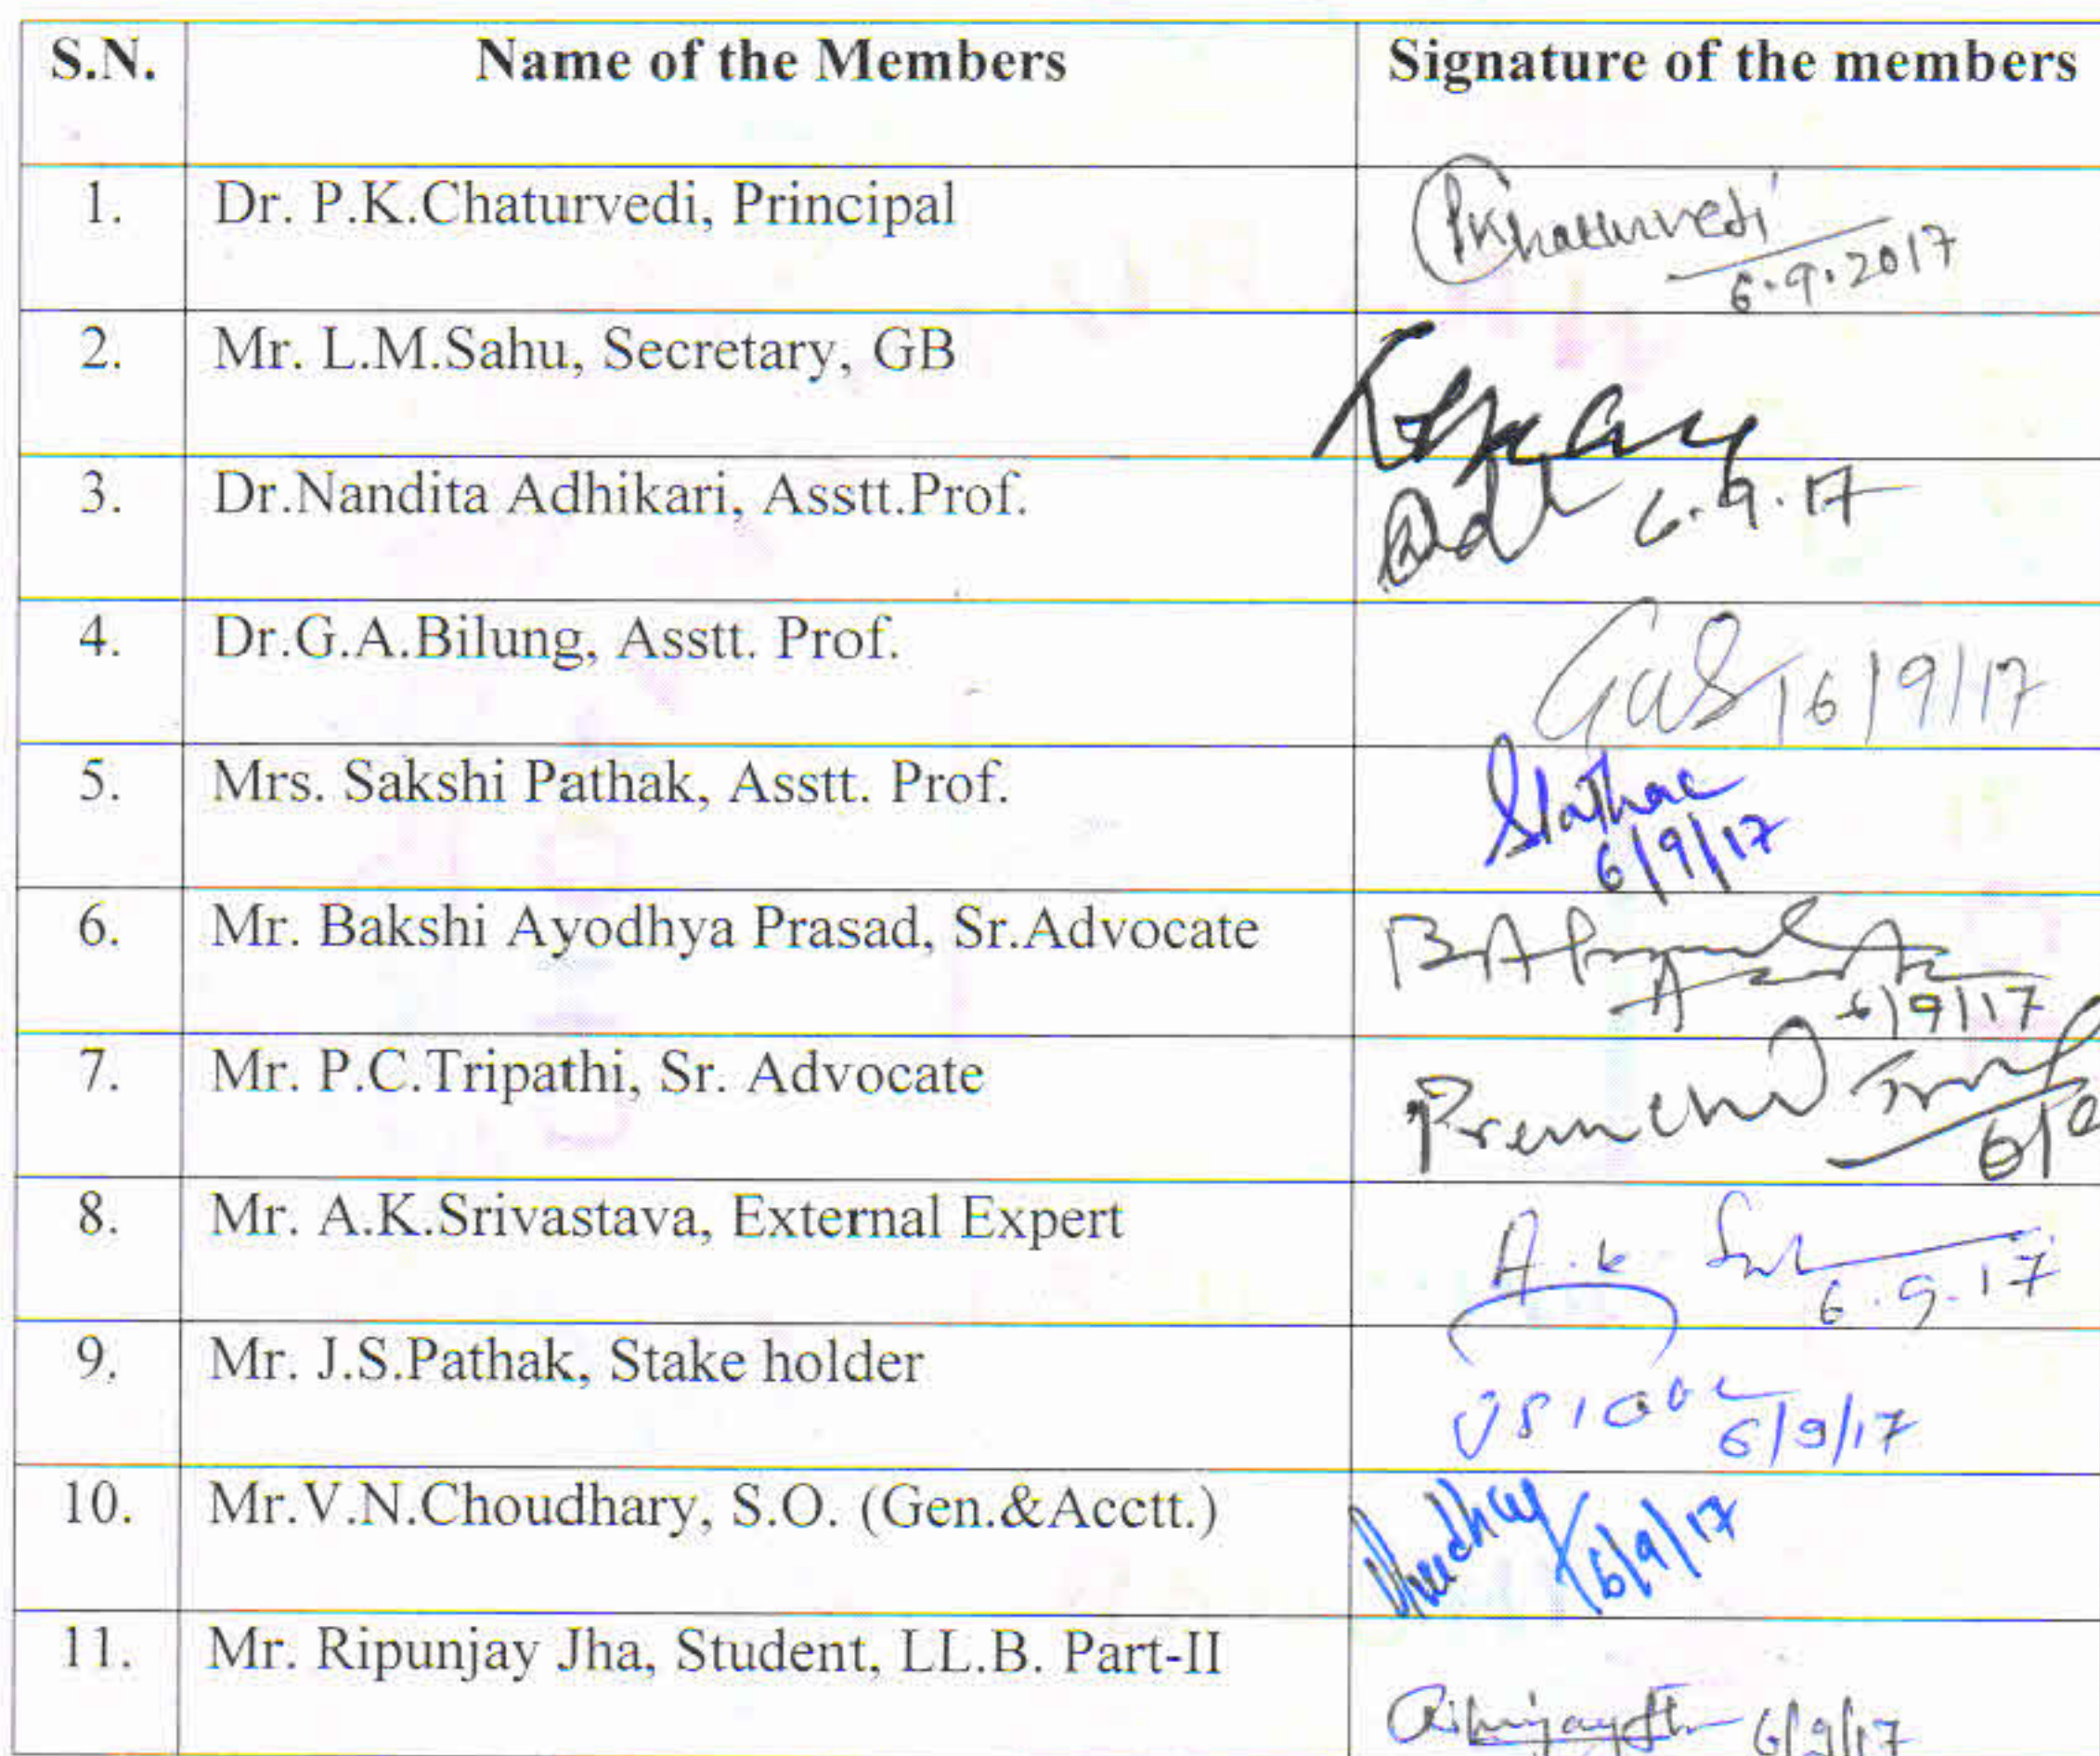 S.N. Name of the Members Signature of the members
1. Dr. P.K.Chaturvedi, Principal PKChaturvedi
6.9.2017
2. Mr. L.M.Sahu, Secretary, GB
3. Dr.Nandita Adhikari, Asstt.Prof. 6.9.17
4. Dr.G.A.Bilung, Asstt. Prof. 6/9/17
5. Mrs. Sakshi Pathak, Asstt. Prof.
6/9/17
6. Mr. Bakshi Ayodhya Prasad, Sr.Advocate
6/9/17
7. Mr. P.C.Tripathi, Sr. Advocate
8. Mr. A.K.Srivastava, External Expert A.K.
6.9.17
9. Mr. J.S.Pathak, Stake holder
6/9/17
10. Mr.V.N.Choudhary, S.O. (Gen.&Acctt.) 6/9/17
11. Mr. Ripunjay Jha, Student, LL.B. Part-II
6/9/17